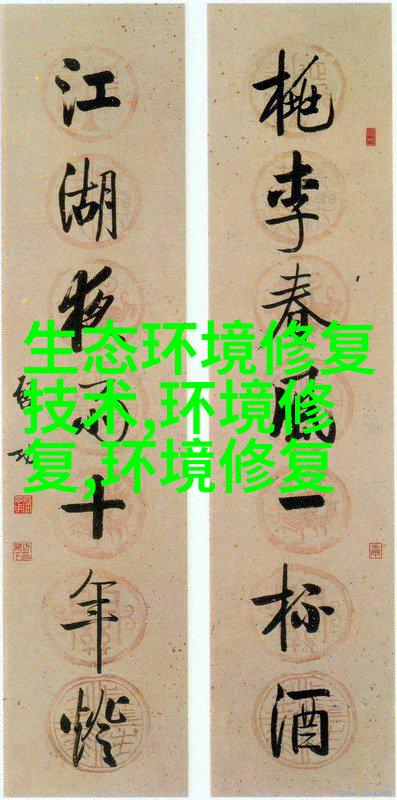 桃李春風一杯酒
江湖夜雨十年燈
生态环境修复
技术,环境修
复,环境修复